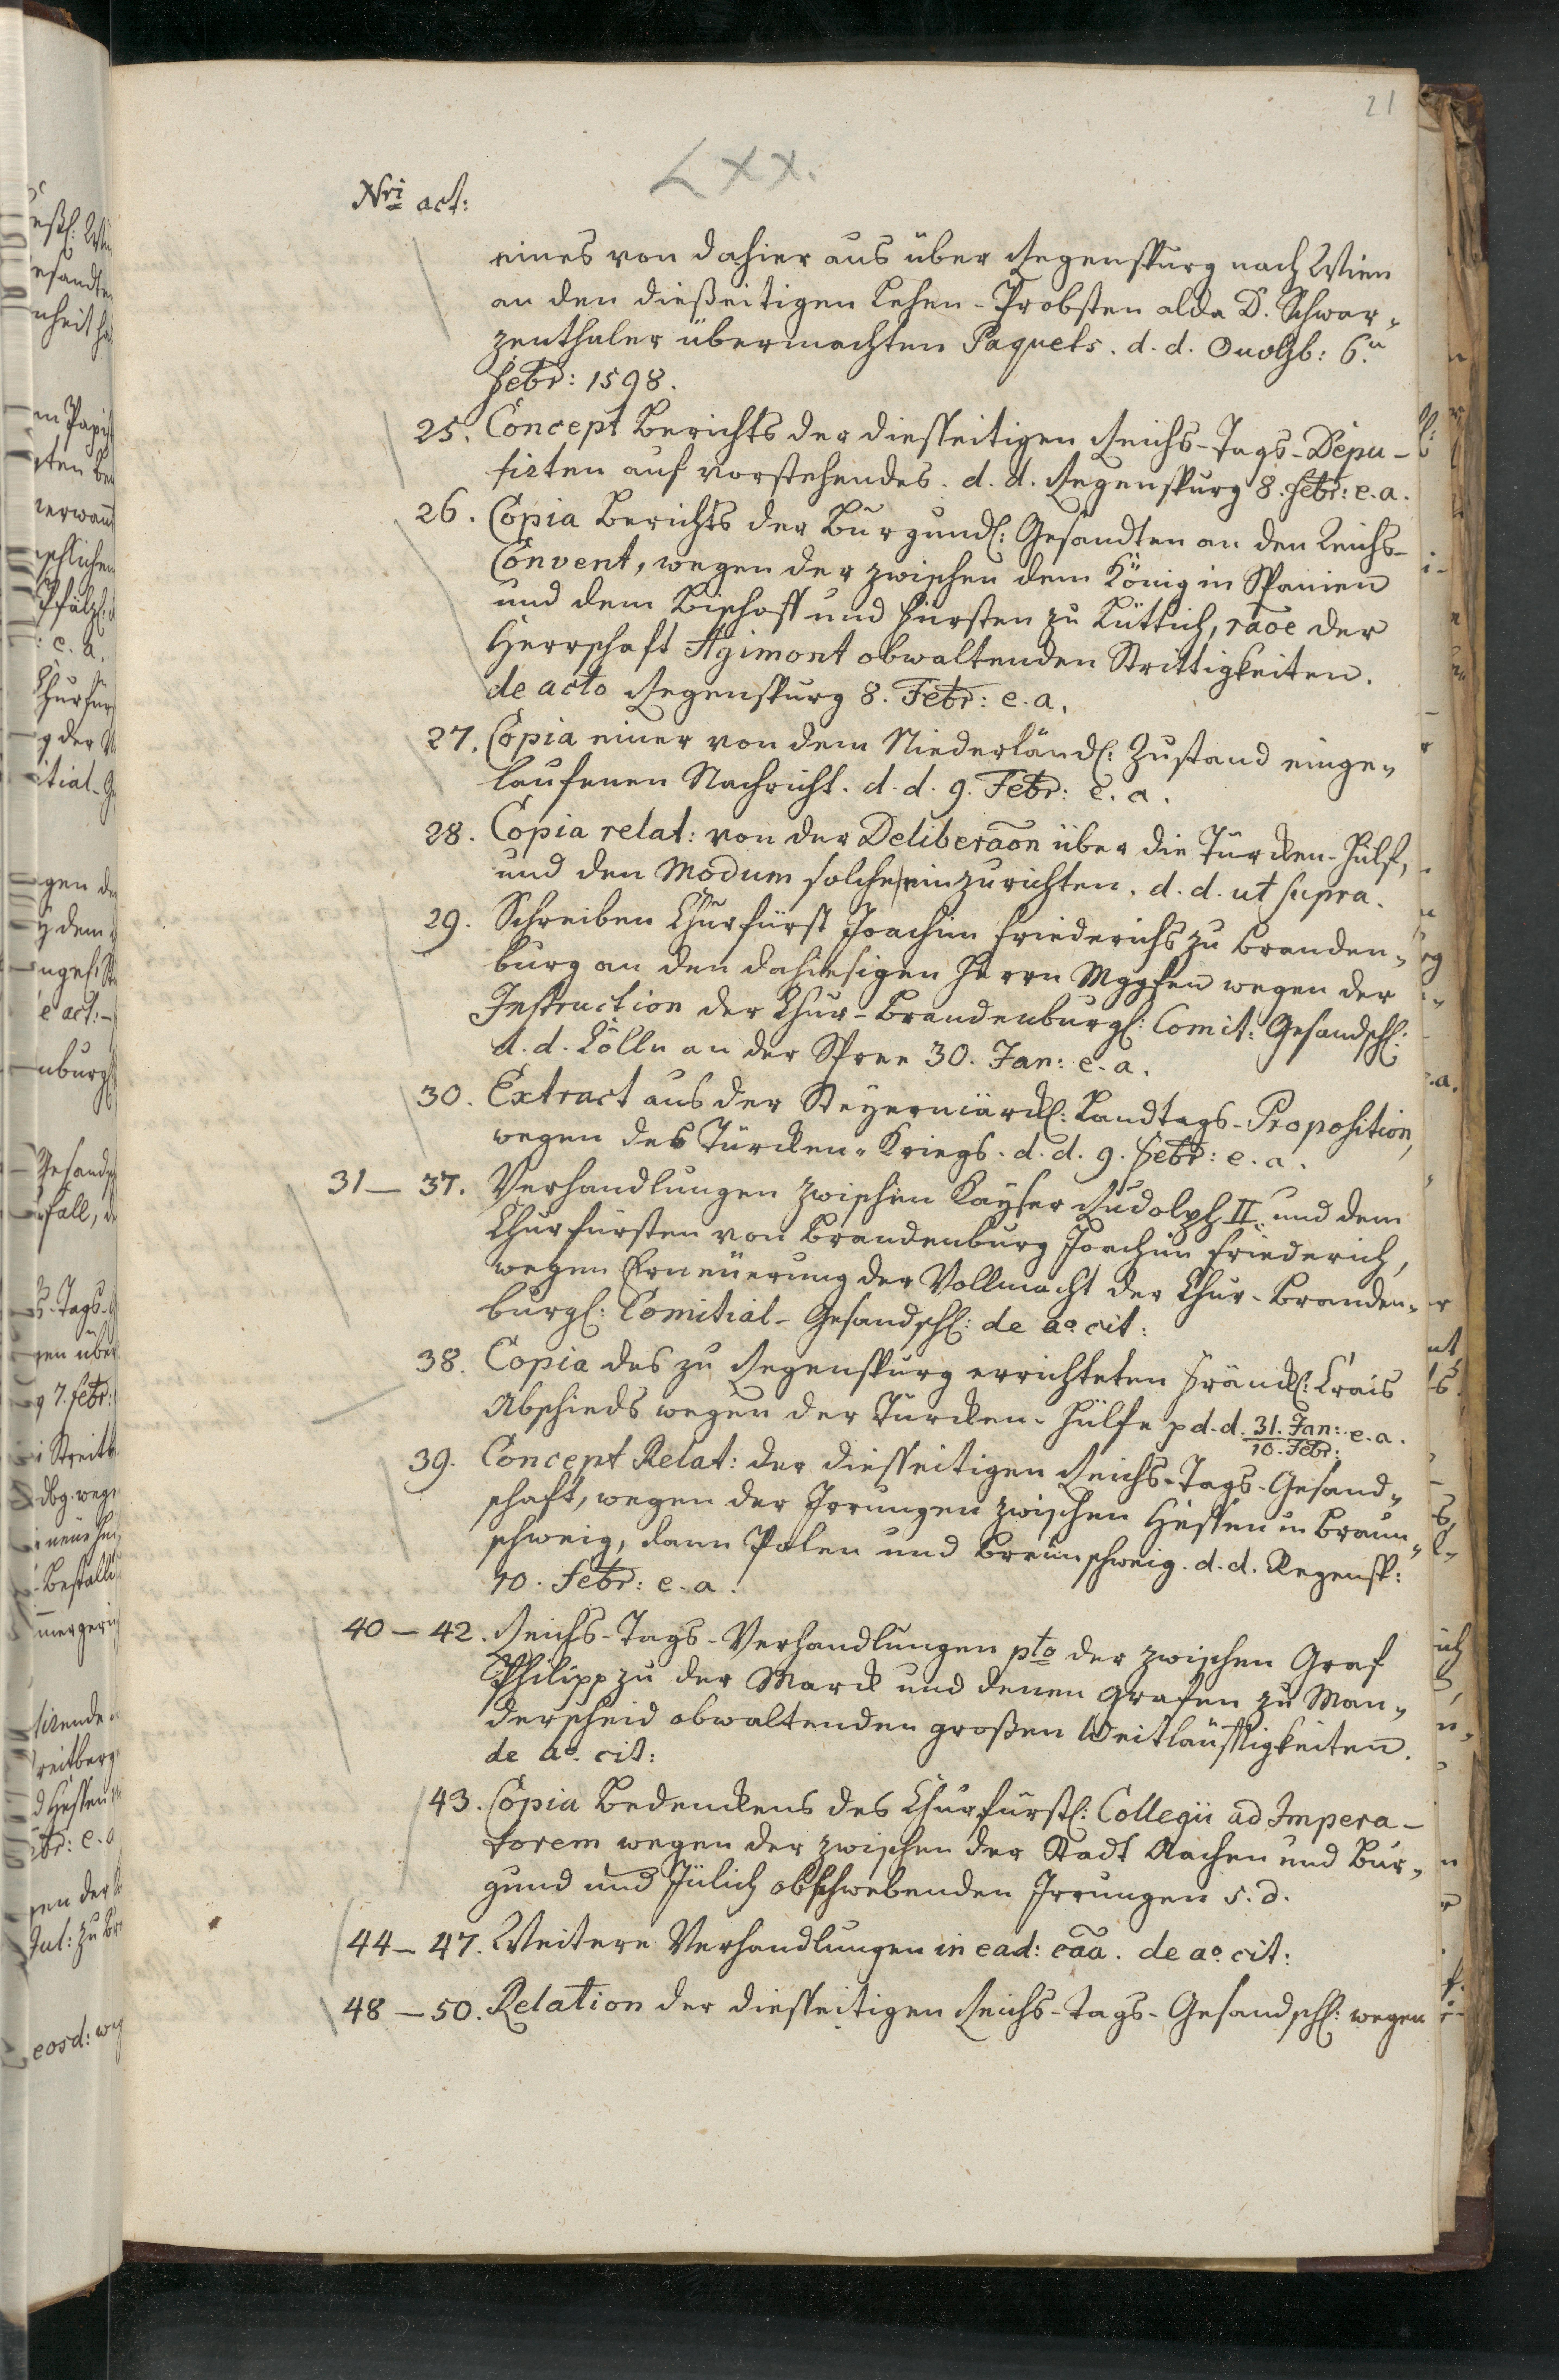 21
LXX.
Nri act:
eines von dahier aus über Regenspurg nach Wien
an den dießeitigen Lehen-Probsten alda D. Schwar„
zenthaler übermachten Paquets. d. d. Onolzb: 6.n
Febr: 1598.
25. Concept Berichts der diesseitigen Reichs-Tags-Depu-
tirten auf vorstehendes. d. d. Regenspurg 8. Febr: e. a.
26. Copia Berichts der Burgundl: Gesandten an den Reichs-
Convent, wegen der zwischen dem König in Spanien
und dem Bischoff und Fürsten zu Lüttich, raõe der
Herrschaft Agimont obwaltenden Strittigkeiten.
de acto Regenspurg 8. Febr: e. a.
27. Copia einer von dem Niederländl: Zustand einge„
laufenen Nachricht. d. d. 9. Febr: e. a.
28. Copia relat: von der Deliberaõn über die Türcken-Hülf,
und den Modum solche einzurichten. d. d. ut supra.
29. Schreiben Churfürst Joachim Friederichs zu Branden„
burg an den dahiesigen Herrn Mggfen wegen der
Instruction der Chur-Brandenburgl: Comit: Gesandschl:
d. d. Cölln an der Spree 30. Jan: e. a.
30. Extract aus der Steyermärckl: Landtags-Proposition,
wegen des Türcken-Kriegs. d. d. 9. Febr: e. a.
31 — 37. Verhandlungen zwischen Kayser Rudolph II. und dem
Churfürsten von Brandenburg Joachim Friederich,
wegen Erneüerung der Vollmacht der Chur-Branden„
burgl: Comitial-Gesandschl: de ao. cit:
38. Copia des zu Regenspurg errichteten Fränckl: Crais
Abschieds wegen der Türcken-Hülfe p d. d. 31. Jan: / 10. Febr: e. a.
39. Concept Relat: der diesseitigen Reichs-Tags-Gesand„
schaft, wegen der Irrungen zwischen Hessen u Braun„
schweig, dann Polen und Braunschweig. d. d. Regensp:
10. Febr: e. a.
40 — 42. Reichs-Tags-Verhandlungen pto der zwischen Graf
Philipp zu der Marck und denen Grafen zu Man„
derscheid obwaltenden großen Weitläufftigkeiten.
de ao. cit:
43. Copia Bedenckens des Churfürstl: Collegii ad Impera-
torem wegen der zwischen der Stadt Aachen und Bur„
gund und Jülich obschwebenden Irrungen s. d.
44 — 47. Weitere Verhandlungen in ead: cãa. de ao. cit:
48 — 50. Relation der diesseitigen Reichs-Tags-Gesandschl: wegen